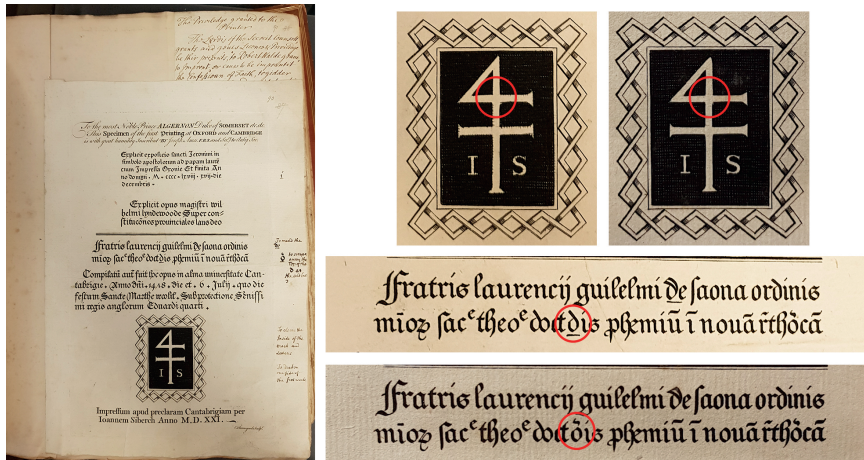 The Priviledge granted to the
Printer.
The Lordis of the Secret Counsell
grants and gives License & Priviledge
be thir presents, to Robert
to Imprent, or cause to be imprentit
the Confessioun of Faith, togedder
To the most Noble Prince ALGERNON Duke of SOMERSET &c &c
This Specimen of the first Printing at OXFORD and CAMBRIDGE
is with great humility Inscribed by
Explicit expositio sancti Jeronimi in
simbolo apostolorum ad papam laurē
cium Impressa Oxonie Et finita An
no domini . M . cccc . lxviij . xvij . die
decembris .
Explicit opus magistri wil
helmi lyndewoode Super con⸗
stitucōnes prouinciales laus deo
Fratris laurencij guilelmi de saona ordinis
mīoꝝ sacͤ theoͤ doctdis ꝓhemiū ī nouā rͥthōcā
Compilatū aūt fuit hoc opus in alma uniuersitate Can-
tabrigie. Anno dn̄i. 1478. die et. 6. July. quo die
festum Sancte Marthe Sub protectione Sēnissi
mi regis anglorum Eduardi quarti.
4
I S
Impressum apud preclaram Cantabrigiam per
Ioannem Siberch Anno M.D.XXI.
4
I S
4
I S
Fratris laurencij guilelmi de saona ordinis
mīoꝝ sacͤ theoͤ doctdis ꝓhemiū ī nouā rͥthōcā
Fratris laurencij guilelmi de saona ordinis
mīoꝝ sacͤ theoͤ doctōis ꝓhemiū ī nouā rͥthōcā